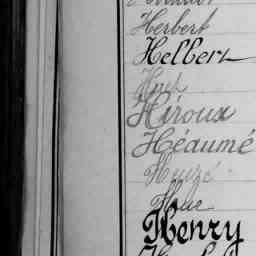 Herbert
Helbert
Hiroux
Héaumé
Huizé
Hue
Henry